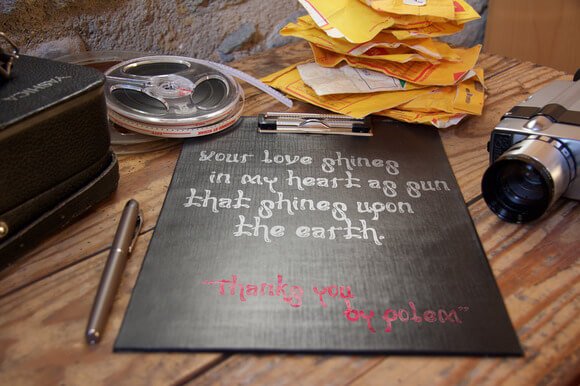 YASHICA
Your love shines
in my heart as sun
that shines upon
the earth.
"Thanks you
by polem"